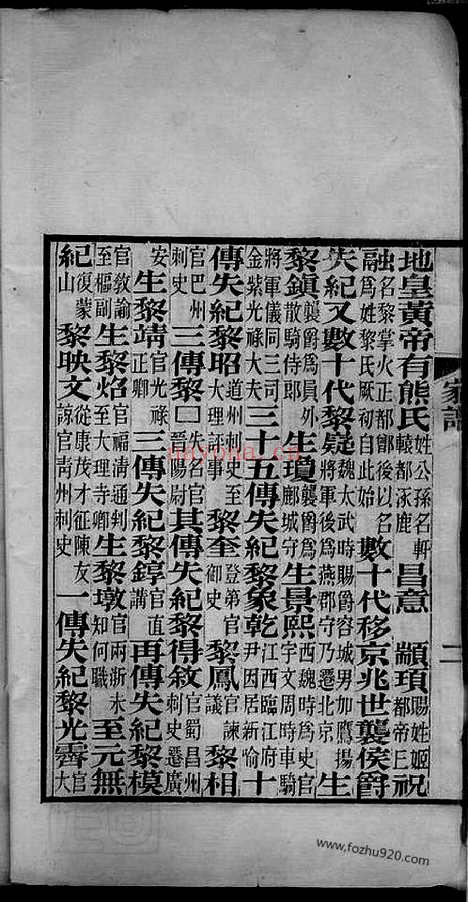 地皇黃帝有熊氏姓公孫名軒轅都涿鹿 昌意 顓頊陽姓姬都帝巨祝
融名黎掌火正都鄶後以名融為姓黎氏厥初自此始 數十代移京兆世襲侯爵
失紀又數十代黎疑魏太武時賜爵容城男加鷹揚將軍後為燕郡守乃遷北京 生
黎鎮襲爵為員外散騎侍郎 生瓊襲爵為鄜城守 生景熙西魏時為史官宇文周時車騎
將軍儀同三司金紫光祿大夫 三十五傳失紀黎象乾江西臨江府尹因居新喻 十
傳失紀黎昭道州刺史至大理評事 黎奎登第官御史 黎鳳官諫議 黎相
官巴州刺史 三傳黎口失名官晉陽尉 其傳失紀黎得敘官蜀昌州刺史遷廣
安 生黎靖官光祿正卿 三傳失紀黎錞官直講 再傳失紀黎模
官敎諭至樞副 生黎焰官福清通判至大理寺卿 生黎墩官兩浙未知何職 至元無
紀復蒙山 黎映文從康茂才征陳友諒官靑州刺史 一傳失紀黎光霽官大
家譜
二
nayona.cn
www.fozhu920.com